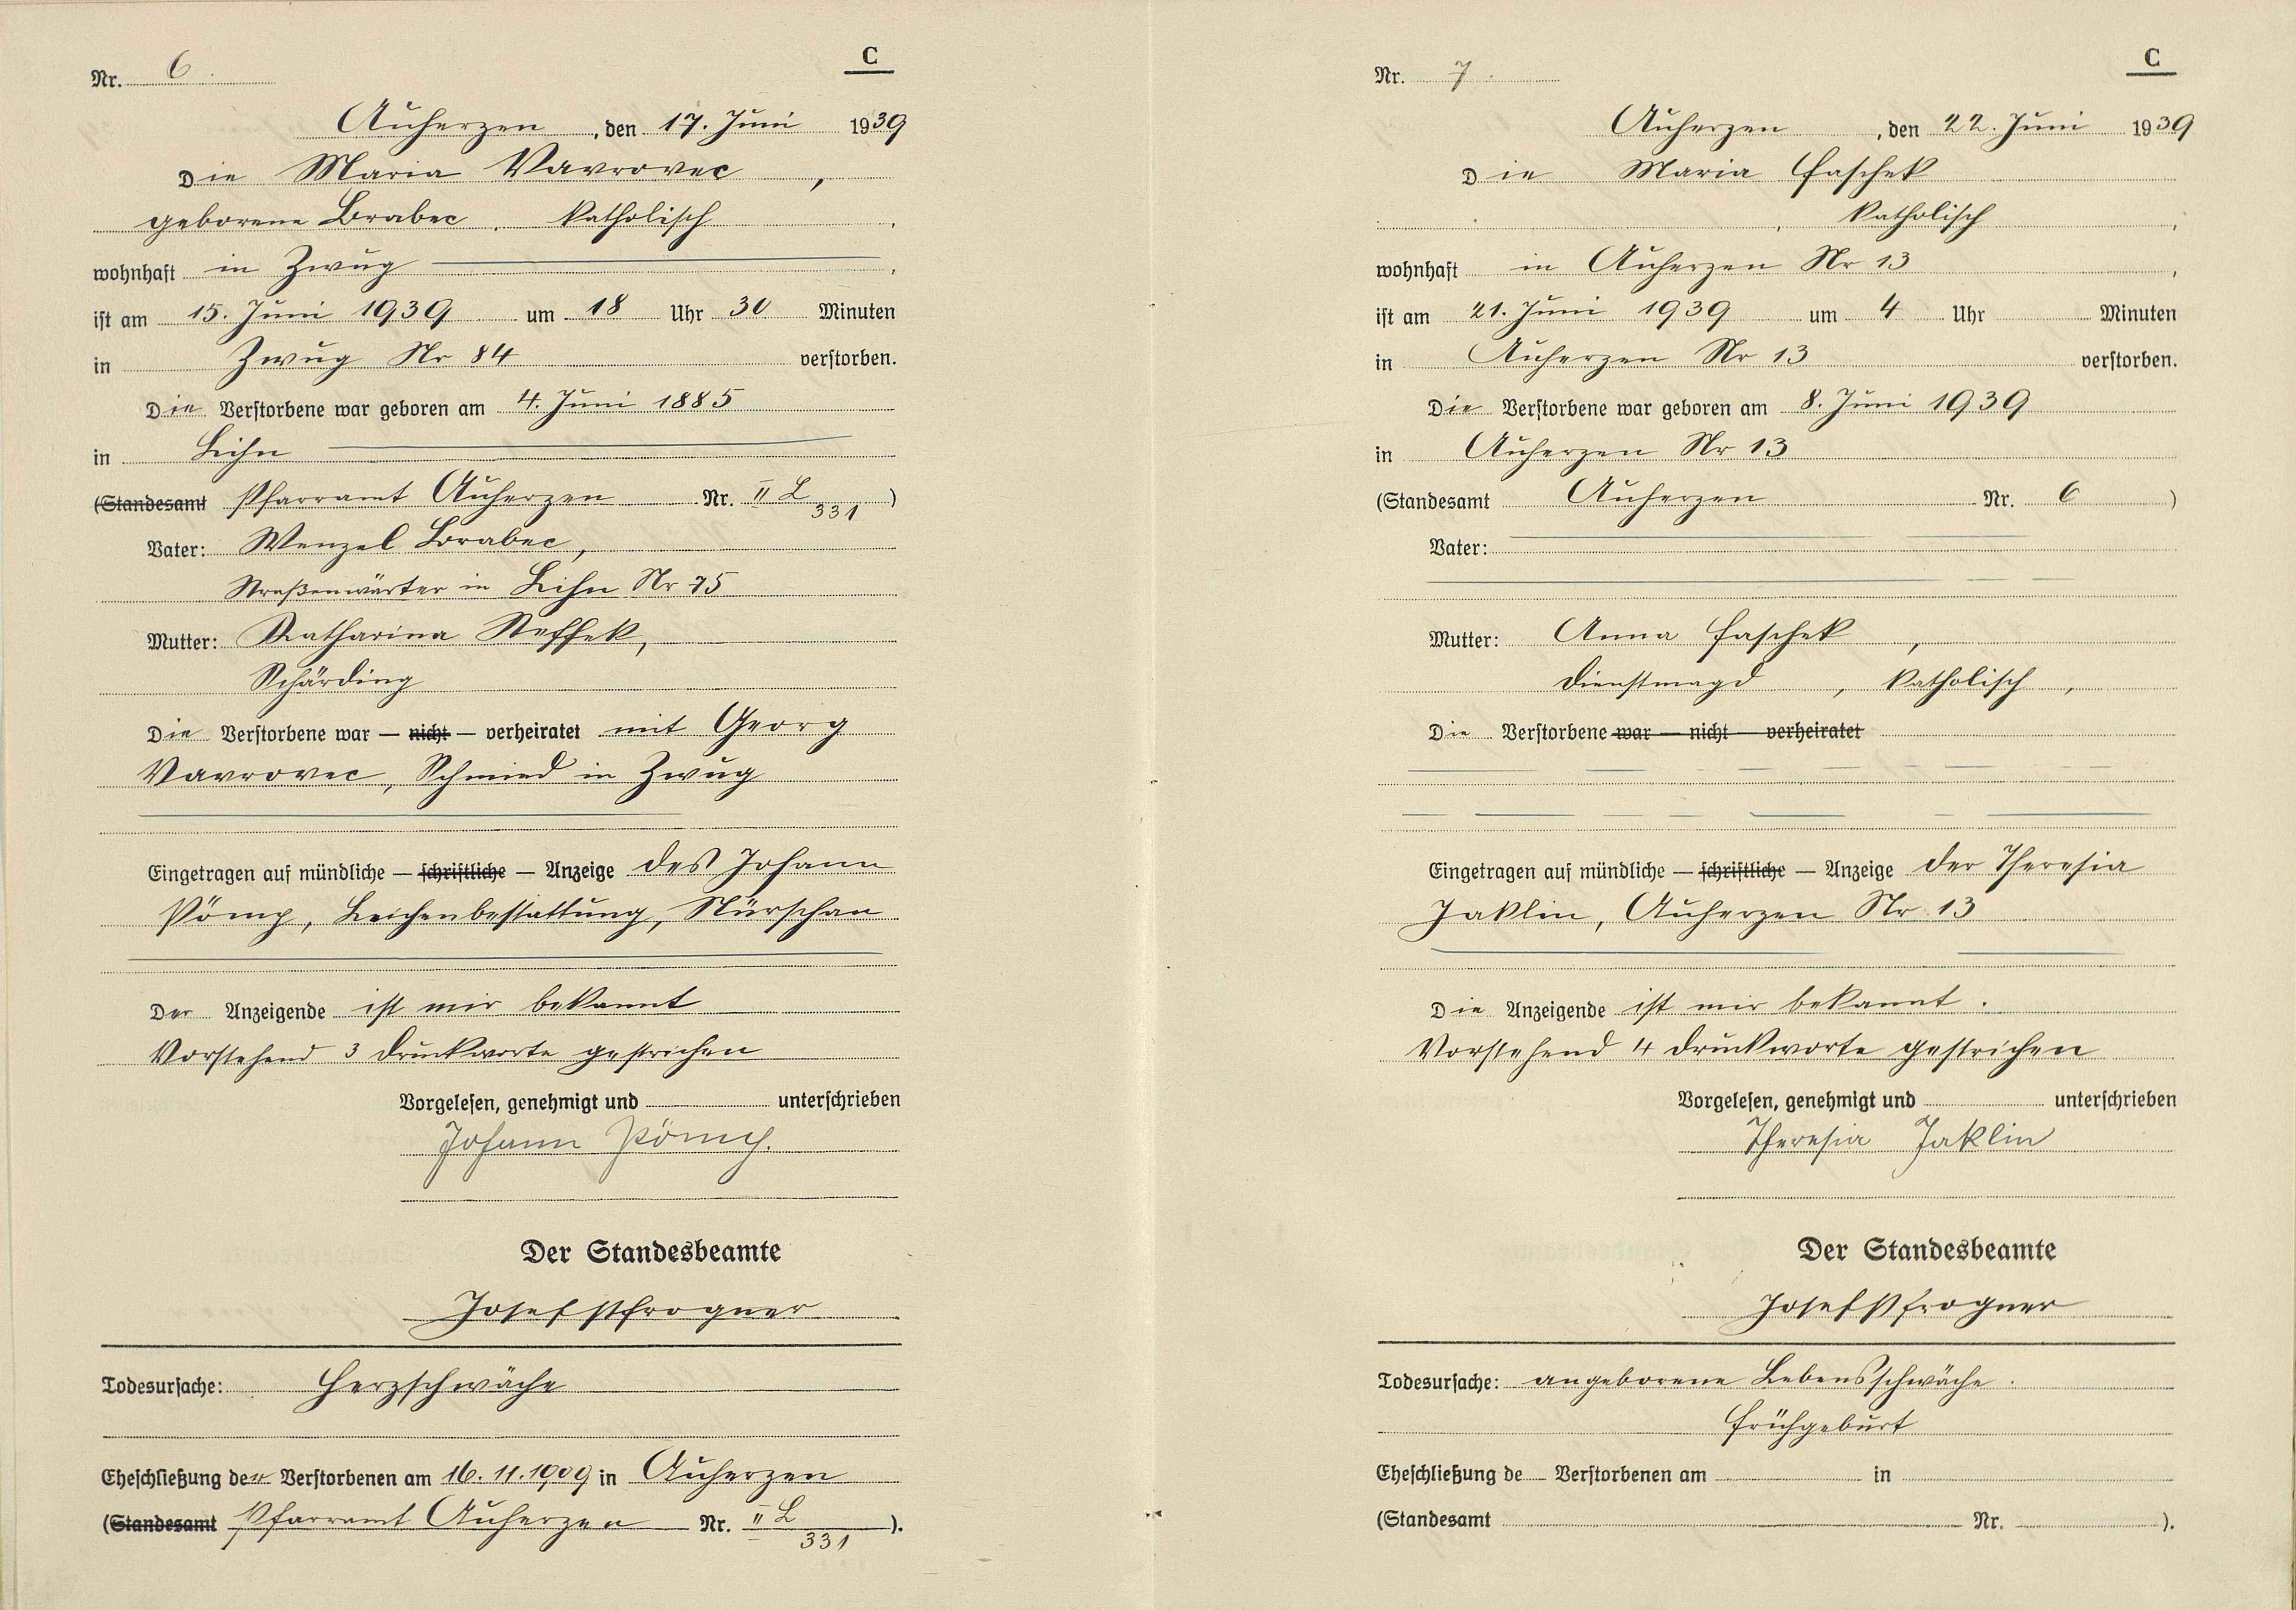 C
Nr. 6.
Auherzen, den 17. Juni 1939
Die Maria Vavrovec,
geborene Brabec, katholisch,
wohnhaft in Zwug,
ist am 15. Juni 1939 um 18 Uhr 30 Minuten
in Zwug Nr 84 verstorben.
Die Verstorbene war geboren am 4. Juni 1885
in Lihn
(Standesamt Pfarramt Auherzen Nr. II L 331)
Vater: Wenzel Brabec,
Straßenwärter in Lihn Nr 75
Mutter: Katharina Steffek,
Schärding
Die Verstorbene war — nicht — verheiratet mit Georg
Vavrovec, Schmied in Zwug
Eingetragen auf mündliche — schriftliche — Anzeige des Johann
Pömp, Leichenbestattung, Nürschan
Der Anzeigende ist mir bekannt
Vorstehend 3 Druckworte gestrichen
Vorgelesen, genehmigt und unterschrieben
Johann
Der Standesbeamte
Josef Pfrogner
Todesursache: Herzschwäche
Eheschließung der Verstorbenen am 16.11.1909 in Auherzen
(Standesamt Pfarramt Auherzen Nr. II L 331).
C
Nr. 7.
Auherzen, den 22. Juni 1939
Die Maria Faschek
, katholisch,
wohnhaft in Auherzen Nr 13,
ist am 21. Juni 1939 um 4 Uhr Minuten
in Auherzen Nr 13 verstorben.
Die Verstorbene war geboren am 8. Juni 1939
in Auherzen Nr 13
(Standesamt Auherzen Nr. 6)
Vater:
Mutter: Anna Faschek,
Dienstmagd, katholisch,
Die Verstorbene war — nicht — verheiratet
Eingetragen auf mündliche — schriftliche — Anzeige der Theresia
Jaklin, Auherzen Nr. 13
Die Anzeigende ist mir bekannt.
Vorstehend 4 Druckworte gestrichen
Vorgelesen, genehmigt und unterschrieben
Theresia Jaklin
Der Standesbeamte
Josef Pfrogner
Todesursache: angeborene Lebensschwäche.
Frühgeburt
Eheschließung de Verstorbenen am in
(Standesamt Nr. ).